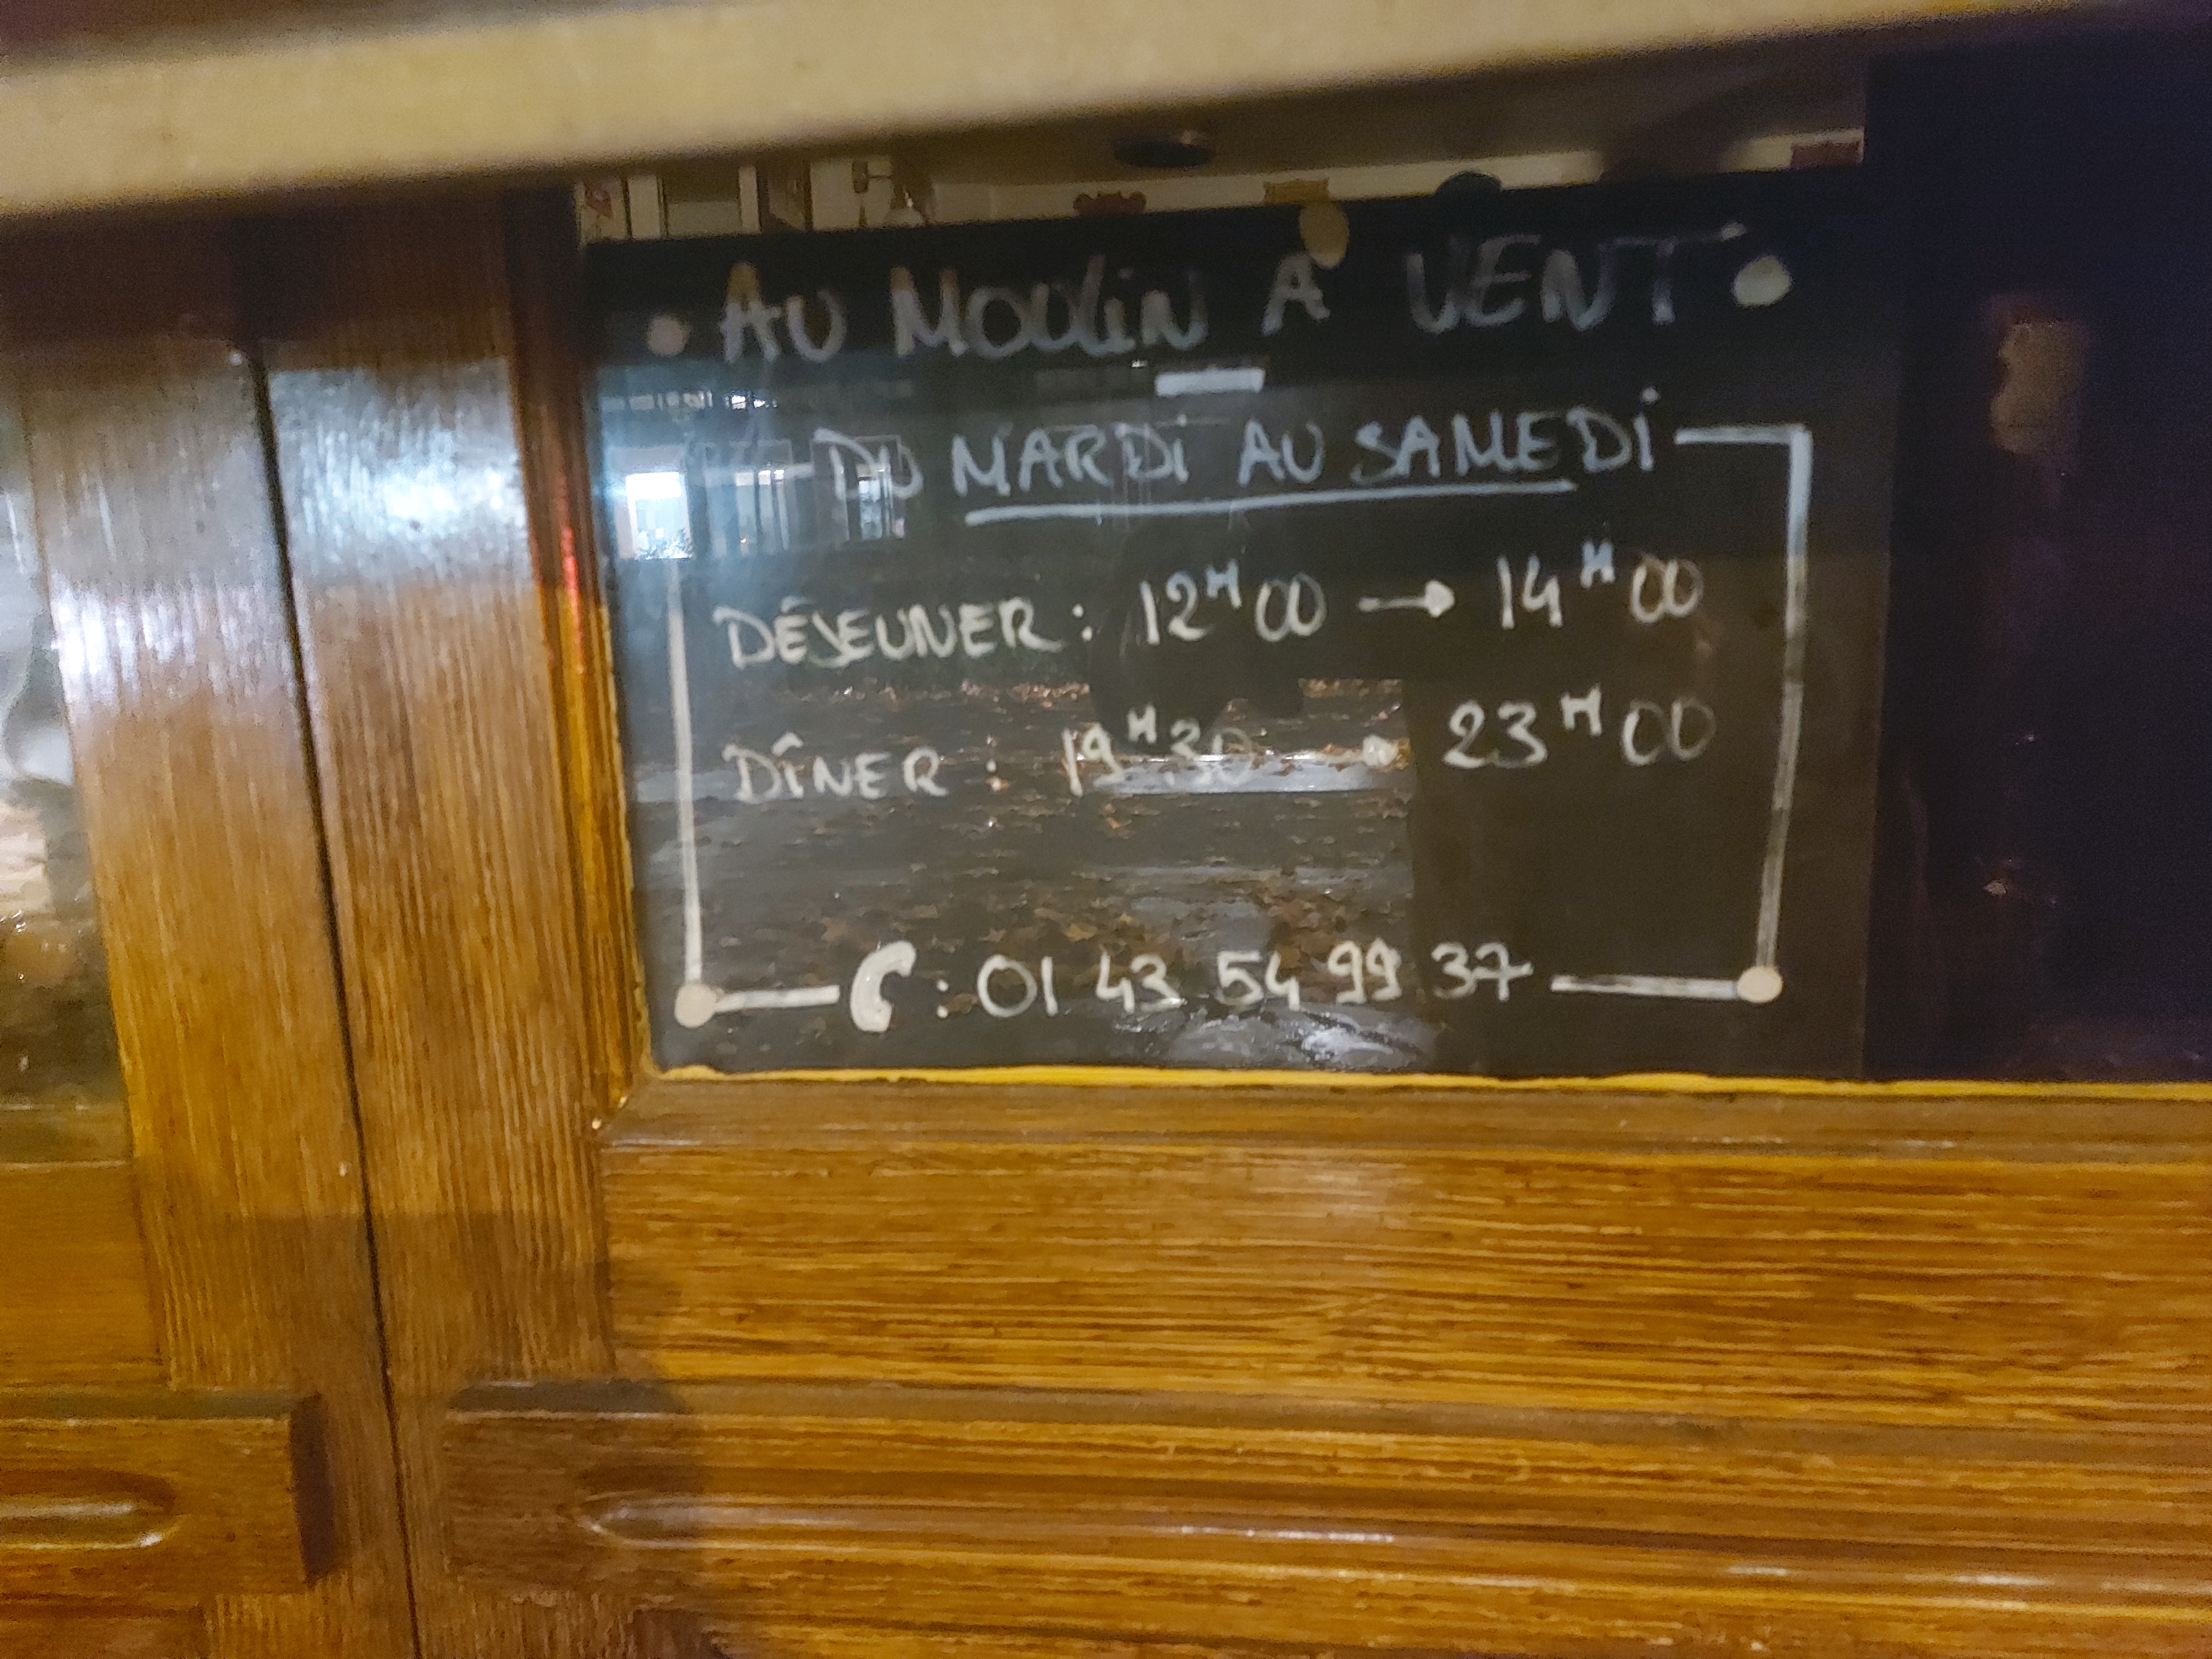 AU MOULIN A VENT
DU MARDI AU SAMEDI
DÉJEUNER : 12H00 → 14H00
DÎNER : 19H30 → 23H00
: 01 43 54 99 37